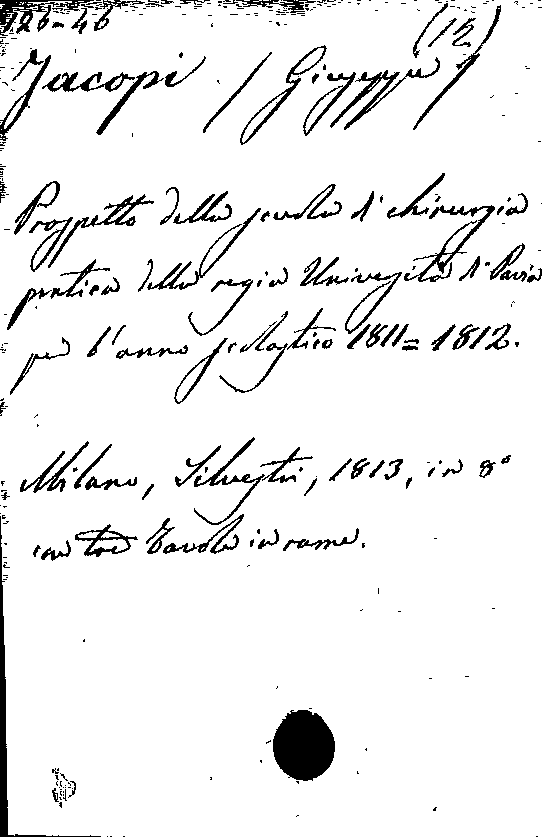 126-46
(12)
Jacopi / Giuseppe /
Prospetto della scuola di chirurgia
pratica della regia Università di Pavia
per l'anno scolastico 1811=1812.
Milano, Silvestri, 1813, in 8°
con tre Tavole in rame.